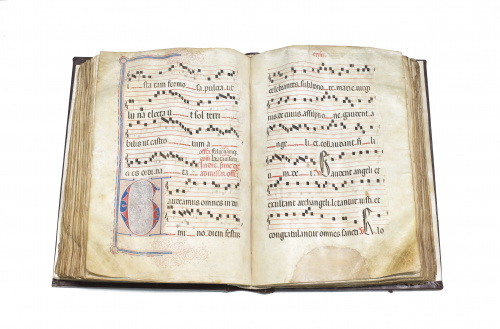 sta tam formo sa, pulcra ut
lu na electa ut sol terri
bilis ut castro tum a
ci es ordi na ta
Gaudeamus omnes in do
mi no. diem festu
celebrantes. sub hono re. marie. virgi
nis. de cuius assūptio ne. gaudent. a
nge li. et collaudant. fi li
um. de i. Gaudent angeli et
exultant archangeli. letantur iusti. et
congratulantur omnes sancti